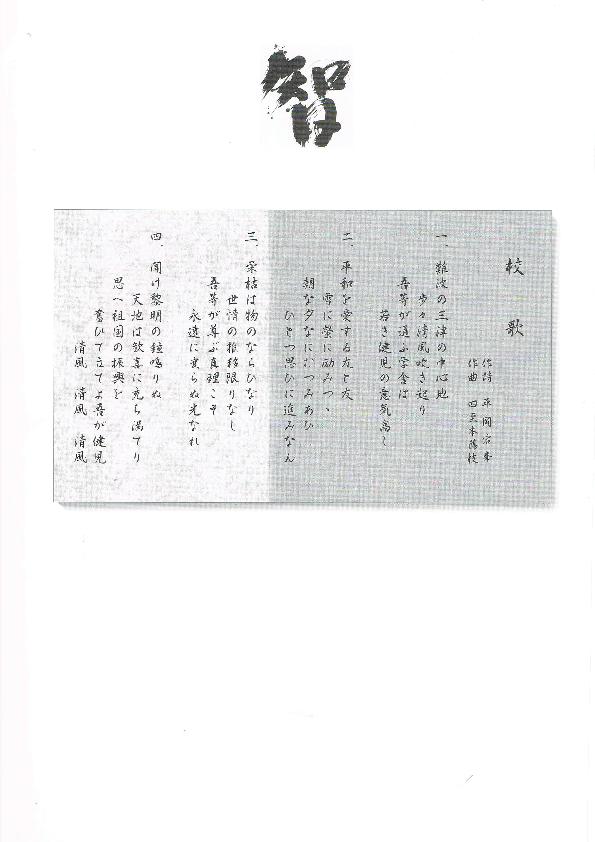 智
校歌
作詩 平岡宕峯
作曲 四至本藤枝
一、難波の三津の中心地
歩々清風吹き起り
吾等が通ふ学舎は
若き健児の意気高し
二、平和を愛する友と友
雪に螢に励みつゝ
朝な夕なにむつみあひ
ひとつ思ひに進みなん
三、栄枯は物のならひなり
世情の推移限りなし
吾等が尊ぶ真理こそ
永遠に変らぬ光なれ
四、聞け黎明の鐘鳴りぬ
天地は歓喜に充ち満てり
思へ祖国の振興を
奮ひて立てよ吾が健児
清風 清風 清風